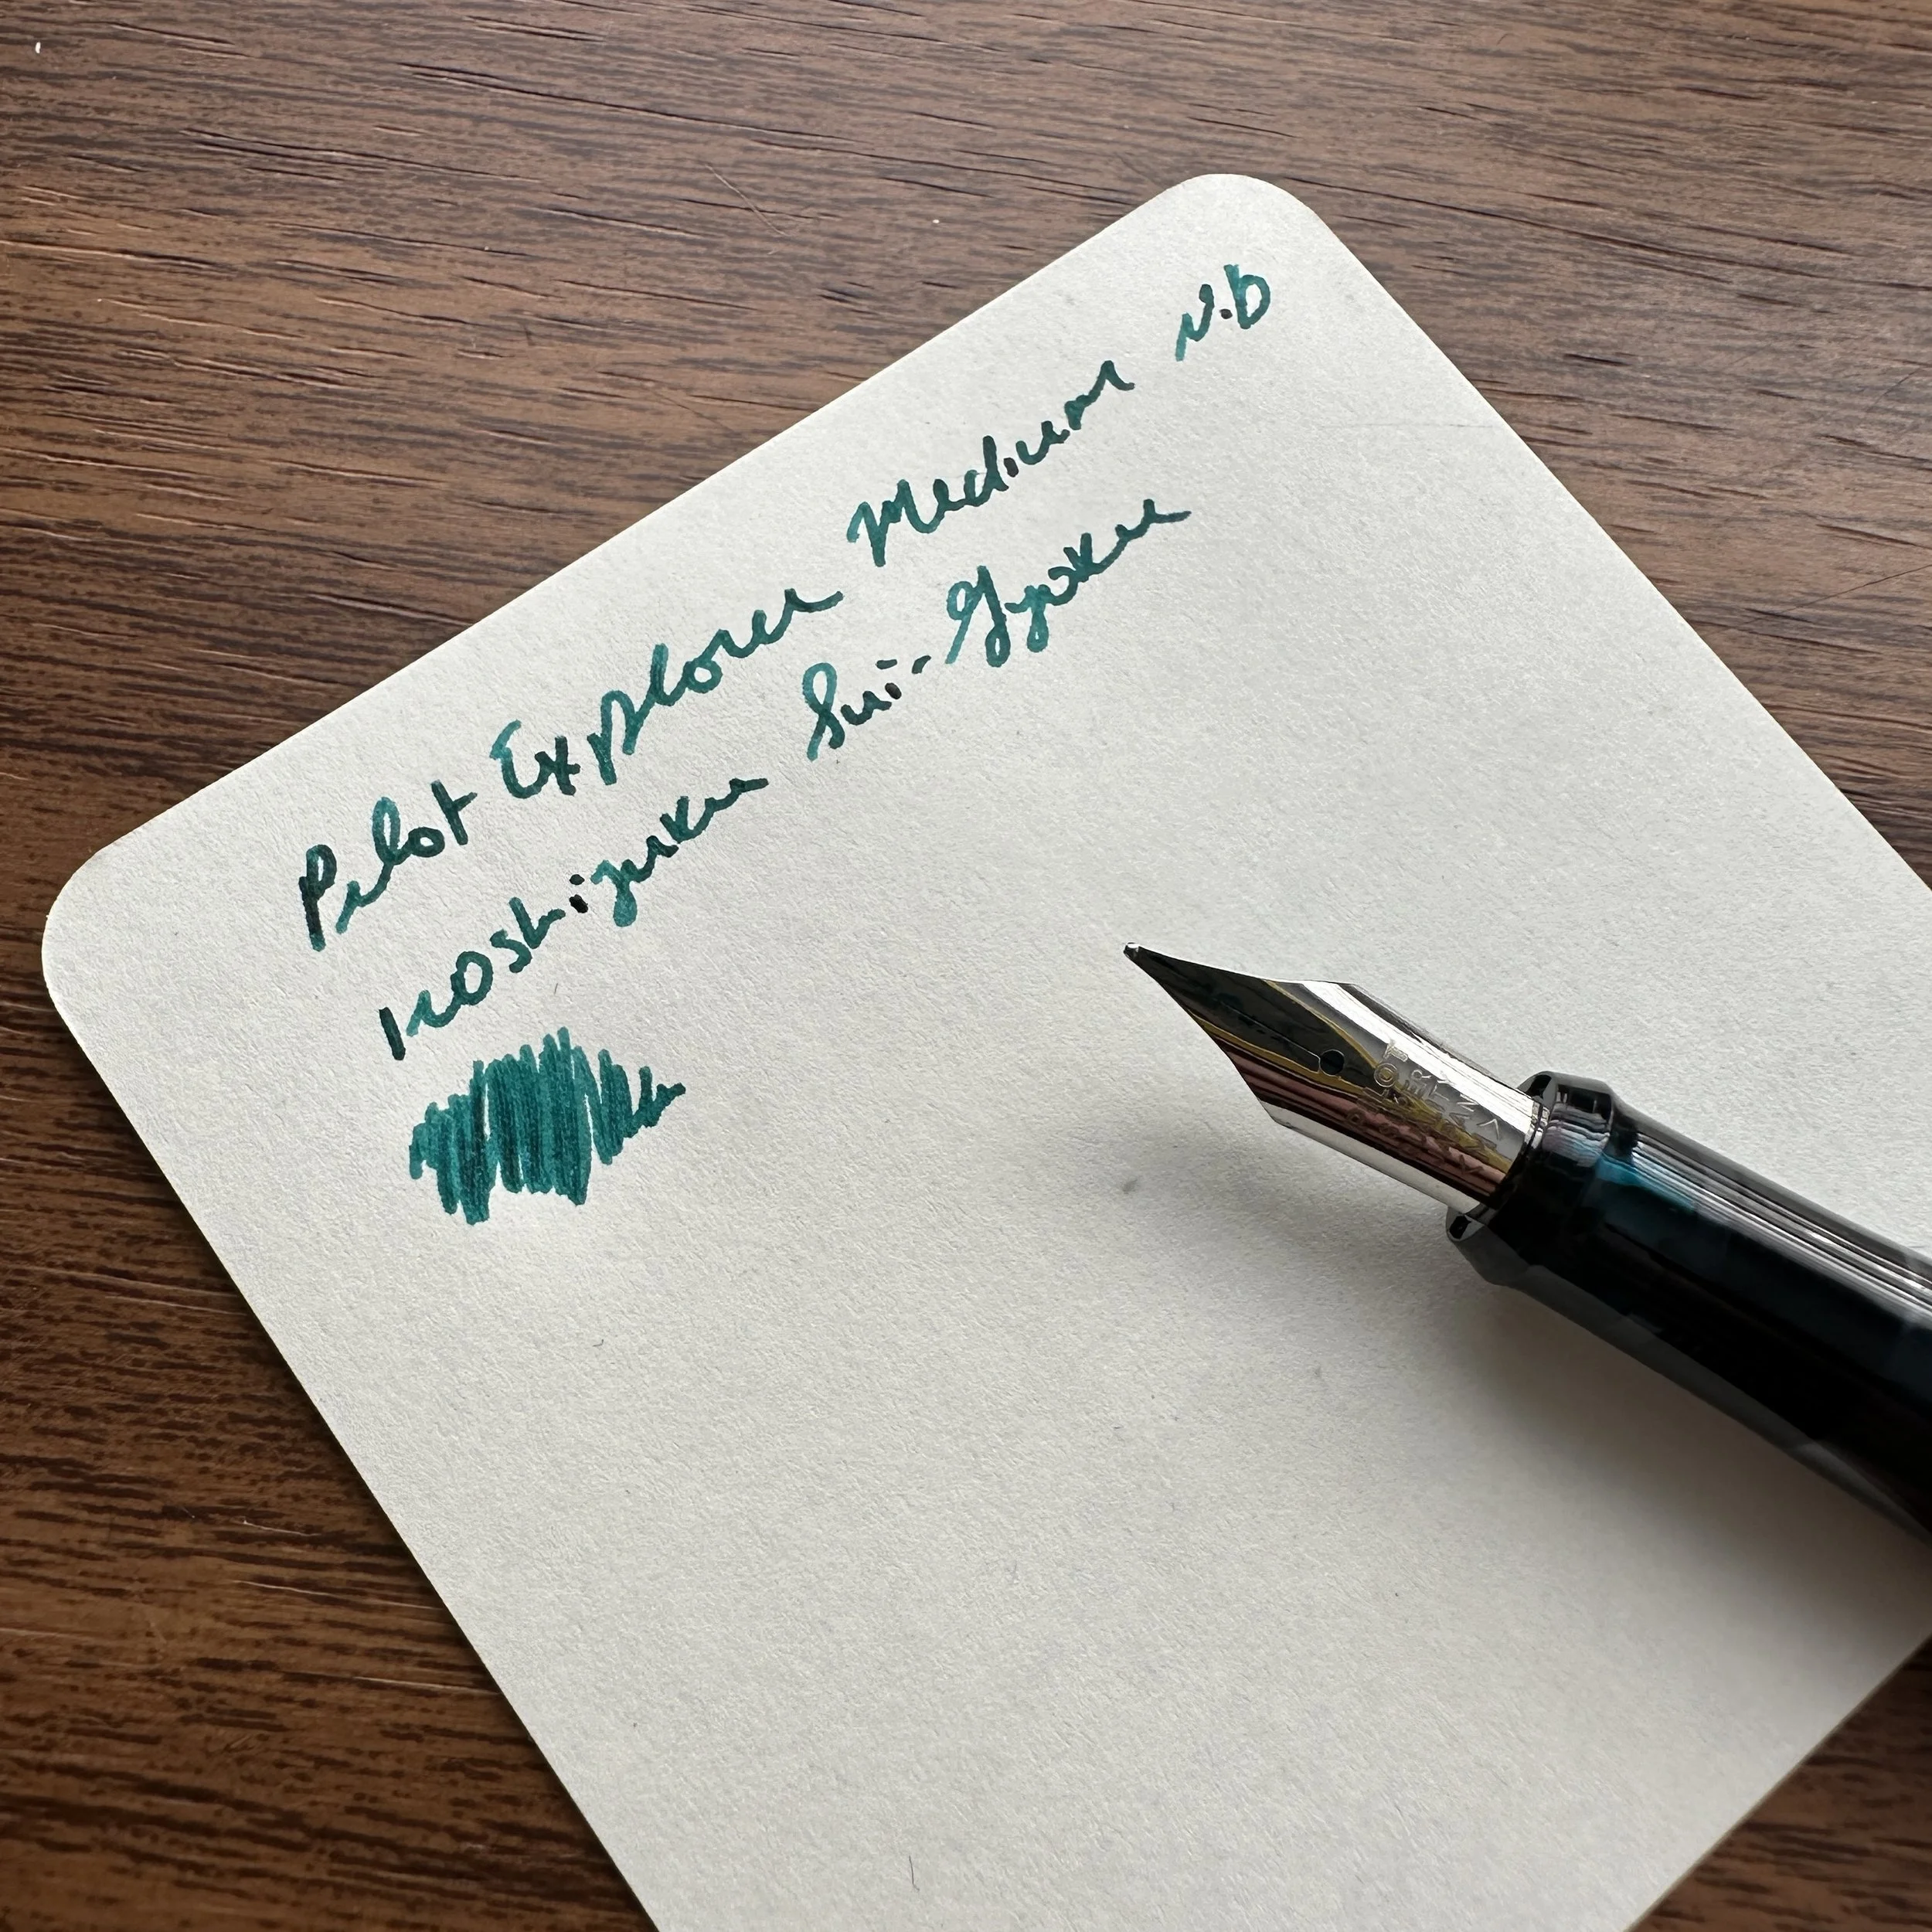 Pilot Explorer Medium Nib
Iroshizuku Sui-Gyoku